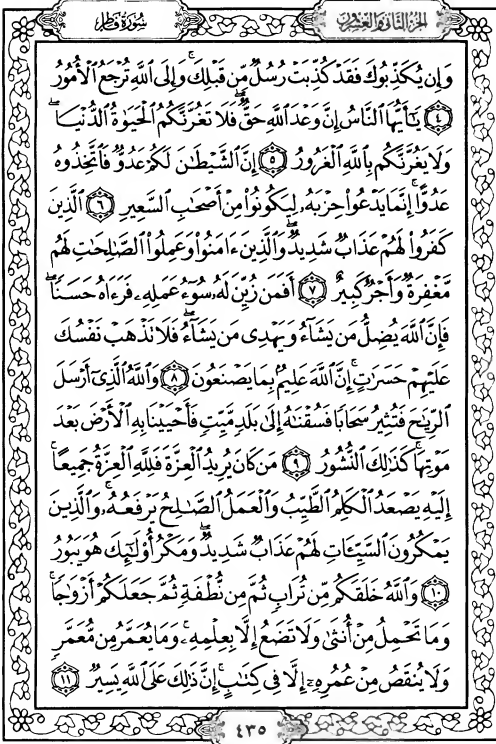 سُورَةُ فَاطِرٍ الجُزْءُ الثَّانِي وَالعِشْرُونَ
وَإِن يُكَذِّبُوكَ فَقَدْ كُذِّبَتْ رُسُلٌ مِّن قَبْلِكَ ۚ وَإِلَى ٱللَّهِ تُرْجَعُ ٱلْأُمُورُ
٤ يَٰٓأَيُّهَا ٱلنَّاسُ إِنَّ وَعْدَ ٱللَّهِ حَقٌّ ۖ فَلَا تَغُرَّنَّكُمُ ٱلْحَيَوٰةُ ٱلدُّنْيَا ۖ
وَلَا يَغُرَّنَّكُم بِٱللَّهِ ٱلْغَرُورُ ٥ إِنَّ ٱلشَّيْطَٰنَ لَكُمْ عَدُوٌّ فَٱتَّخِذُوهُ
عَدُوًّا ۚ إِنَّمَا يَدْعُوا۟ حِزْبَهُۥ لِيَكُونُوا۟ مِنْ أَصْحَٰبِ ٱلسَّعِيرِ ٦ ٱلَّذِينَ
كَفَرُوا۟ لَهُمْ عَذَابٌ شَدِيدٌ ۖ وَٱلَّذِينَ ءَامَنُوا۟ وَعَمِلُوا۟ ٱلصَّٰلِحَٰتِ لَهُم
مَّغْفِرَةٌ وَأَجْرٌ كَبِيرٌ ٧ أَفَمَن زُيِّنَ لَهُۥ سُوٓءُ عَمَلِهِۦ فَرَءَاهُ حَسَنًا ۖ
فَإِنَّ ٱللَّهَ يُضِلُّ مَن يَشَآءُ وَيَهْدِى مَن يَشَآءُ ۖ فَلَا تَذْهَبْ نَفْسُكَ
عَلَيْهِمْ حَسَرَٰتٍ ۚ إِنَّ ٱللَّهَ عَلِيمٌۢ بِمَا يَصْنَعُونَ ٨ وَٱللَّهُ ٱلَّذِىٓ أَرْسَلَ
ٱلرِّيَٰحَ فَتُثِيرُ سَحَابًا فَسُقْنَٰهُ إِلَىٰ بَلَدٍ مَّيِّتٍ فَأَحْيَيْنَا بِهِ ٱلْأَرْضَ بَعْدَ
مَوْتِهَا ۚ كَذَٰلِكَ ٱلنُّشُورُ ٩ مَن كَانَ يُرِيدُ ٱلْعِزَّةَ فَلِلَّهِ ٱلْعِزَّةُ جَمِيعًا ۚ
إِلَيْهِ يَصْعَدُ ٱلْكَلِمُ ٱلطَّيِّبُ وَٱلْعَمَلُ ٱلصَّٰلِحُ يَرْفَعُهُۥ ۚ وَٱلَّذِينَ
يَمْكُرُونَ ٱلسَّيِّـَٔاتِ لَهُمْ عَذَابٌ شَدِيدٌ ۖ وَمَكْرُ أُو۟لَٰٓئِكَ هُوَ يَبُورُ
١٠ وَٱللَّهُ خَلَقَكُم مِّن تُرَابٍ ثُمَّ مِن نُّطْفَةٍ ثُمَّ جَعَلَكُمْ أَزْوَٰجًا ۚ
وَمَا تَحْمِلُ مِنْ أُنثَىٰ وَلَا تَضَعُ إِلَّا بِعِلْمِهِۦ ۚ وَمَا يُعَمَّرُ مِن مُّعَمَّرٍ
وَلَا يُنقَصُ مِنْ عُمُرِهِۦٓ إِلَّا فِى كِتَٰبٍ ۚ إِنَّ ذَٰلِكَ عَلَى ٱللَّهِ يَسِيرٌ ١١
٤٣٥